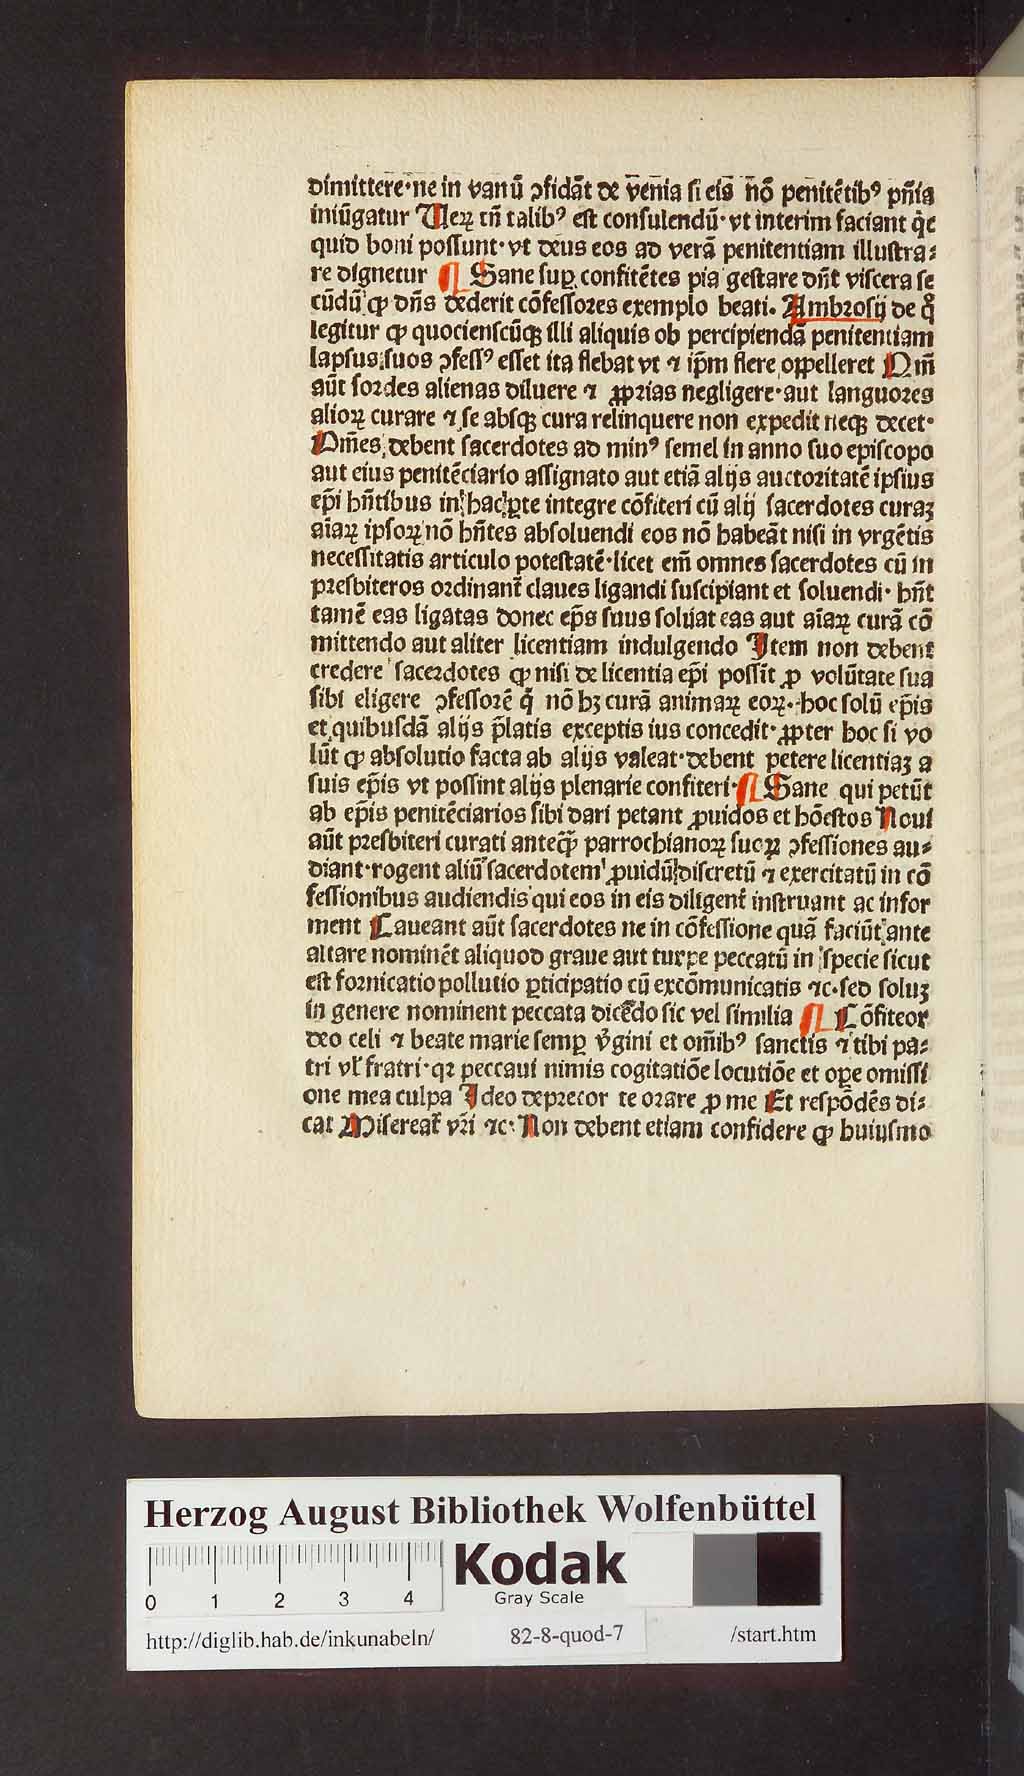 dimittere·ne in vanū ꝯfidāt de venia si eis nō penitētibꝰ pn̄ia
iniūgatur Ueꝝ tn̄ talibꝰ est consulendū·vt interim faciant qͥc
quid boni possunt·vt deus eos ad verā penitentiam illustra⸗
re dignetur ¶ Sane suꝑ confitētes pia gestare dn̄t viscera se
cūdū ꝙ dn̄s dederit cōfessores exemplo beati. Ambrosij de qͦ
legitur ꝙ quocienscūqꝫ illi aliquis ob percipiendā penitentiam
lapsus suos ꝯfessꝰ esset ita flebat vt ⁊ ip̄m flere ↄ̨pelleret Nīn̄
aūt sordes alienas diluere ⁊ ꝓprias negligere·aut languores
alioꝝ curare ⁊ se absqꝫ cura relinquere non expedit neqꝫ decet·
Om̄es debent sacerdotes ad minꝰ semel in anno suo episcopo
aut eius penitēciario assignato aut etiā alijs auctoritatē ipsius
ep̄i hn̄tibus in hac ꝑte integre cōfiteri cū alij sacerdotes curaꝫ
aīaꝝ ipsoꝝ nō hn̄tes absoluendi eos nō habeāt nisi in vrgētis
necessitatis articulo potestatē·licet em̄ omnes sacerdotes cū in
presbiteros ordinant̄ claues ligandi suscipiant et soluendi· hn̄t
tamē eas ligatas donec ep̄s suus soluat eas aut aīaꝝ curā cō
mittendo aut aliter licentiam indulgendo Item non debent
credere sacerdotes ꝙ nisi de licentia ep̄i possīt ꝓ volūtate sua
sibi eligere ꝯfessorē qͥ nō hꝫ curā animaꝝ eoꝝ·hoc solū ep̄is
et quibusdā alijs p̄latis exceptis ius concedit·ꝓpter hoc si vo
lūt ꝙ absolutio facta ab alijs valeat·debent petere licentiaꝫ a
suis ep̄is vt possint alijs plenarie confiteri·¶ Sane qui petūt
ab ep̄is penitēciarios sibi dari petant ꝓuidos et hōestos Noui
aūt presbiteri curati anteqͣꝫ parrochianoꝝ suoꝝ ꝯfessiones au⸗
diant·rogent aliū sacerdotem ꝓuidū discretū ⁊ exercitatū in cō
fessionibus audiendis qui eos in eis diligent̄ instruant ac infor
ment Caueant aūt sacerdotes ne in cōfessione quā faciūt ante
altare nominēt aliquod graue aut turpe peccatū in specie sicut
est fornicatio pollutio ꝑticipatio cū excōmunicatis ⁊c·sed soluꝫ
in genere nominent peccata dicēdo sic vel similia ¶ Cōfiteor
deo celi ⁊ beate marie semꝑ v̓gini et om̄ibꝰ sanctis ⁊ tibi pa⸗
tri vl̓ fratri·qꝛ peccaui nimis cogitatiōe locutiōe et oꝑe omissi
one mea culpa Ideo deprecor te orare ꝓ me Et respōdēs di⸗
cat Misereat̓ vr̄i ⁊c·Non debent etiam confidere ꝙ huiusmo
Herzog August Bibliothek Wolfenbüttel
Kodak
Gray Scale
0 1 2 3 4
http://diglib.hab.de/inkunabeln/ 82-8-quod-7 /start.htm